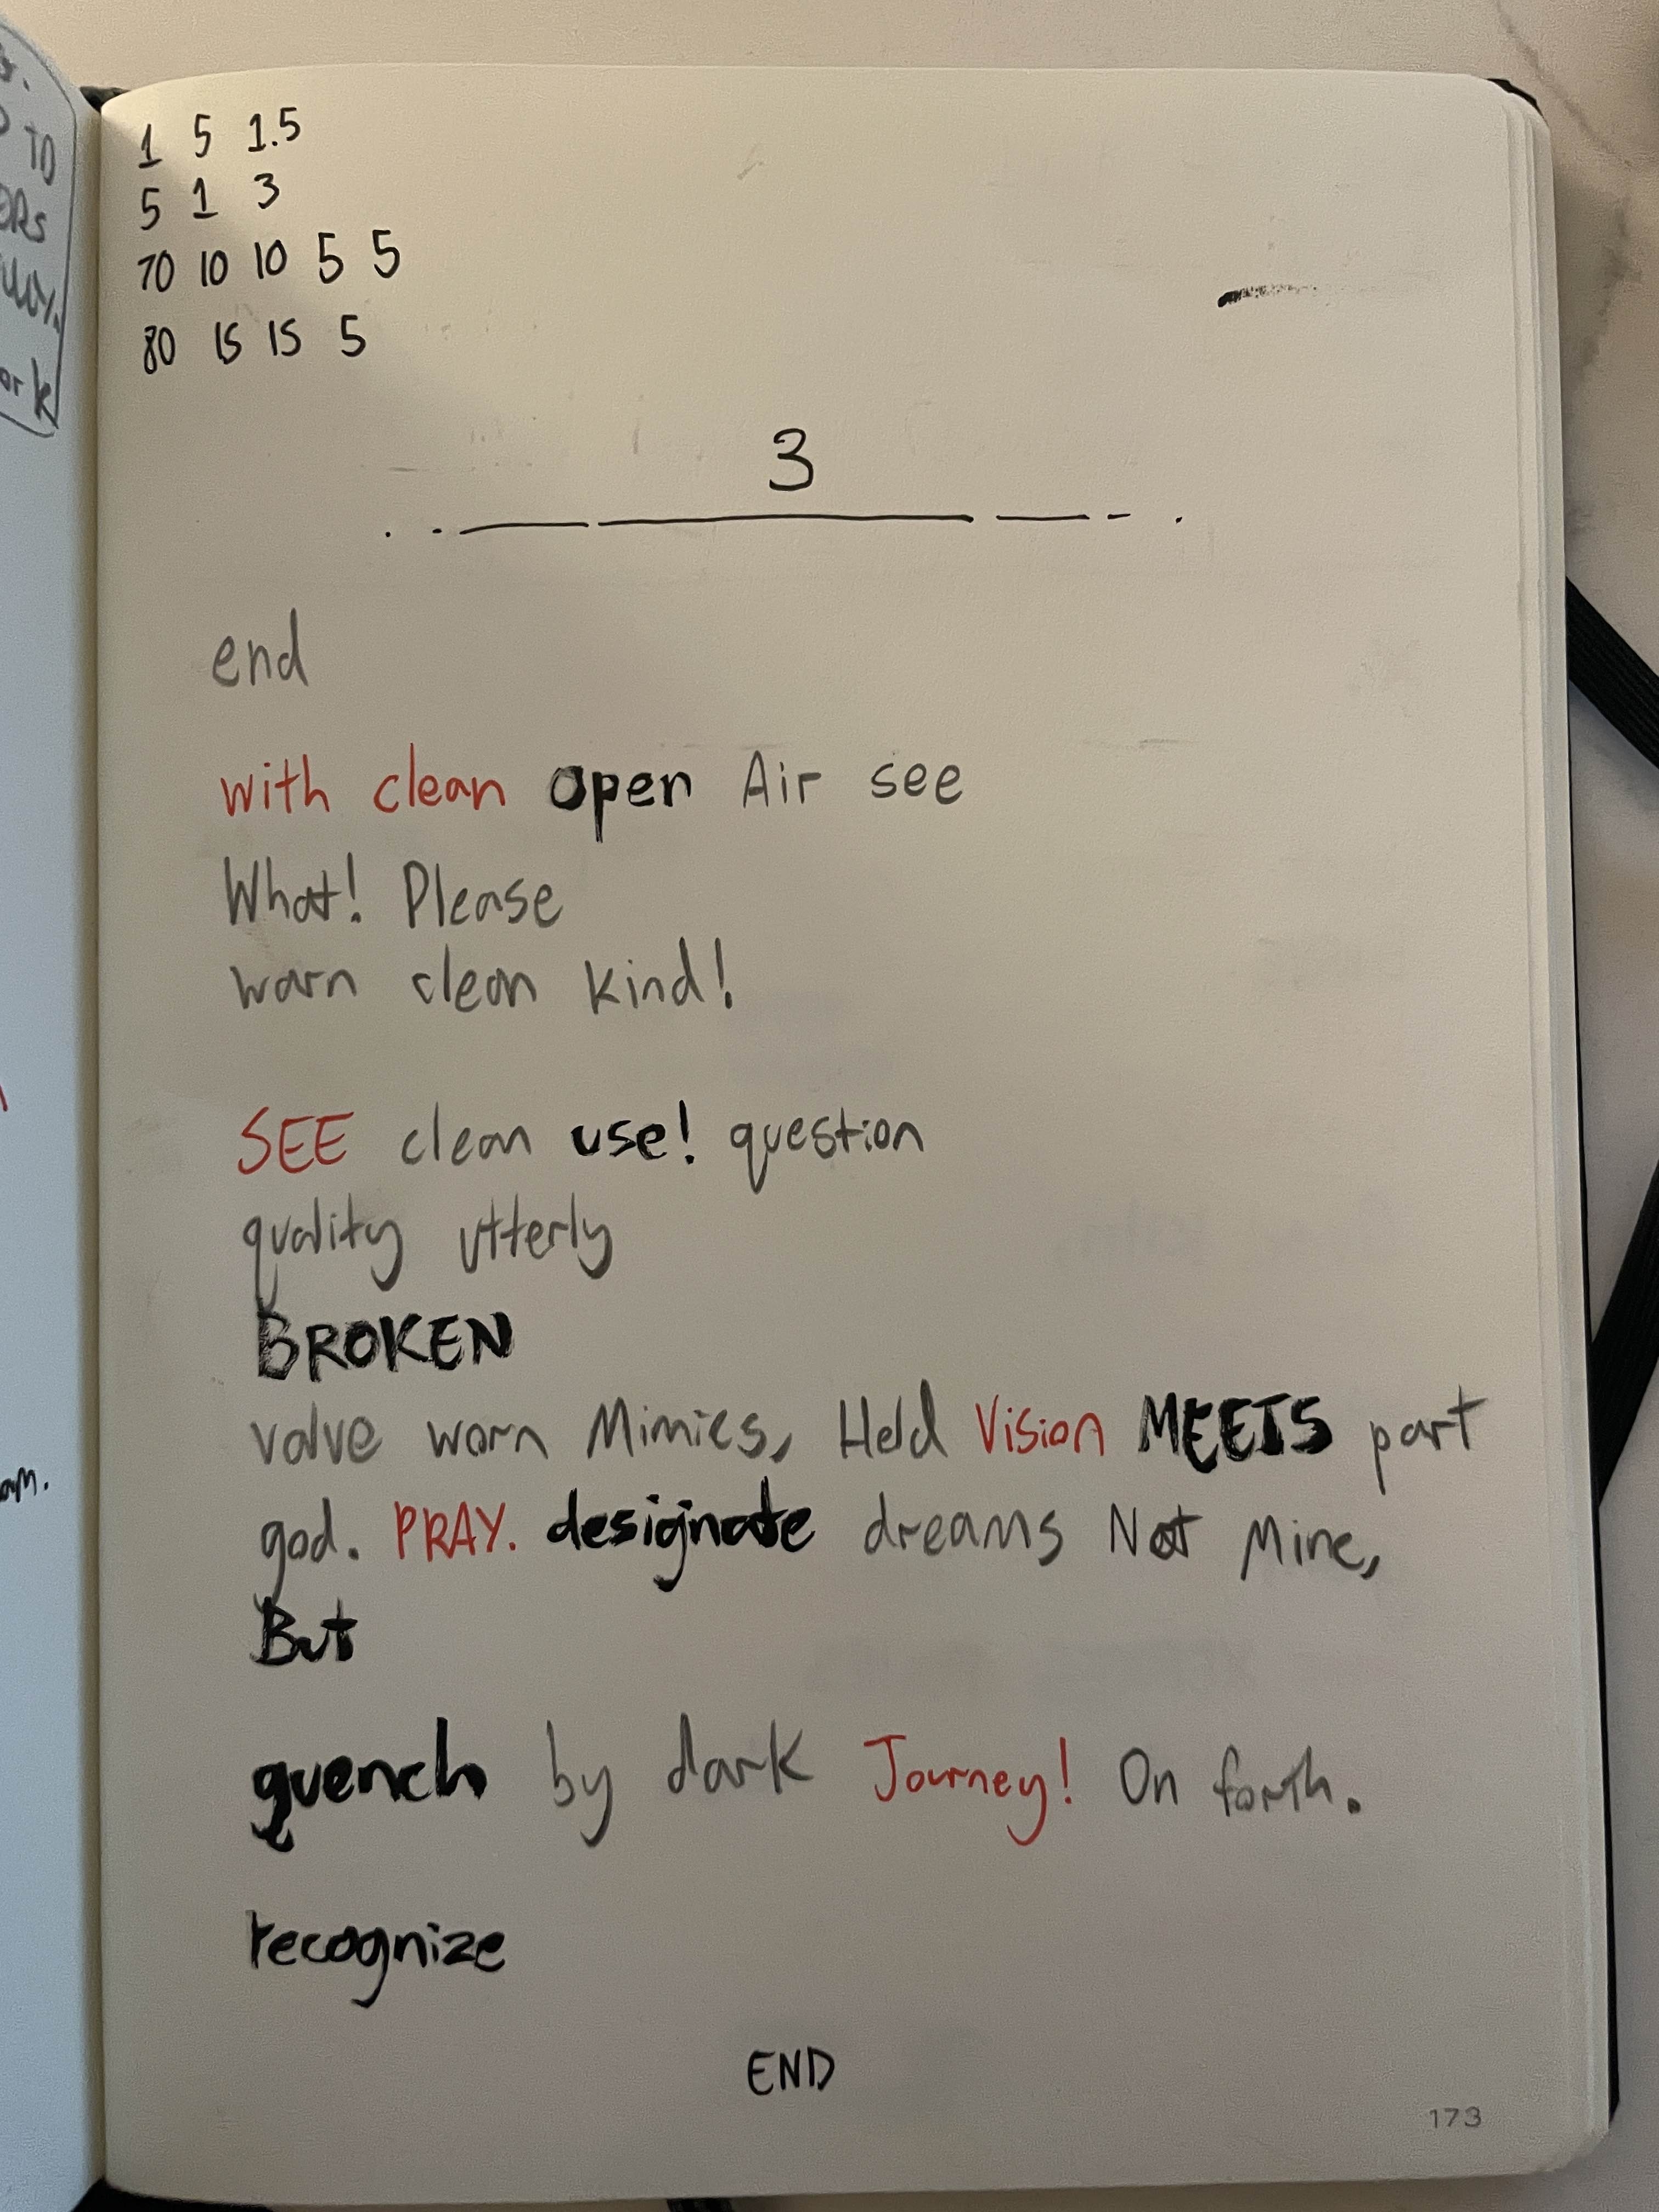 1 5 1.5
5 1 3
70 10 10 5 5
80 15 15 5
3
end
with clean open Air see
What! Please
warn clean kind!
SEE clean use! question
quality utterly
BROKEN
valve warn Mimics, Held Vision MEETS part
god. PRAY. designate dreams Not Mine,
But
quench by dark Journey! On forth.
recognize
END
173
TO